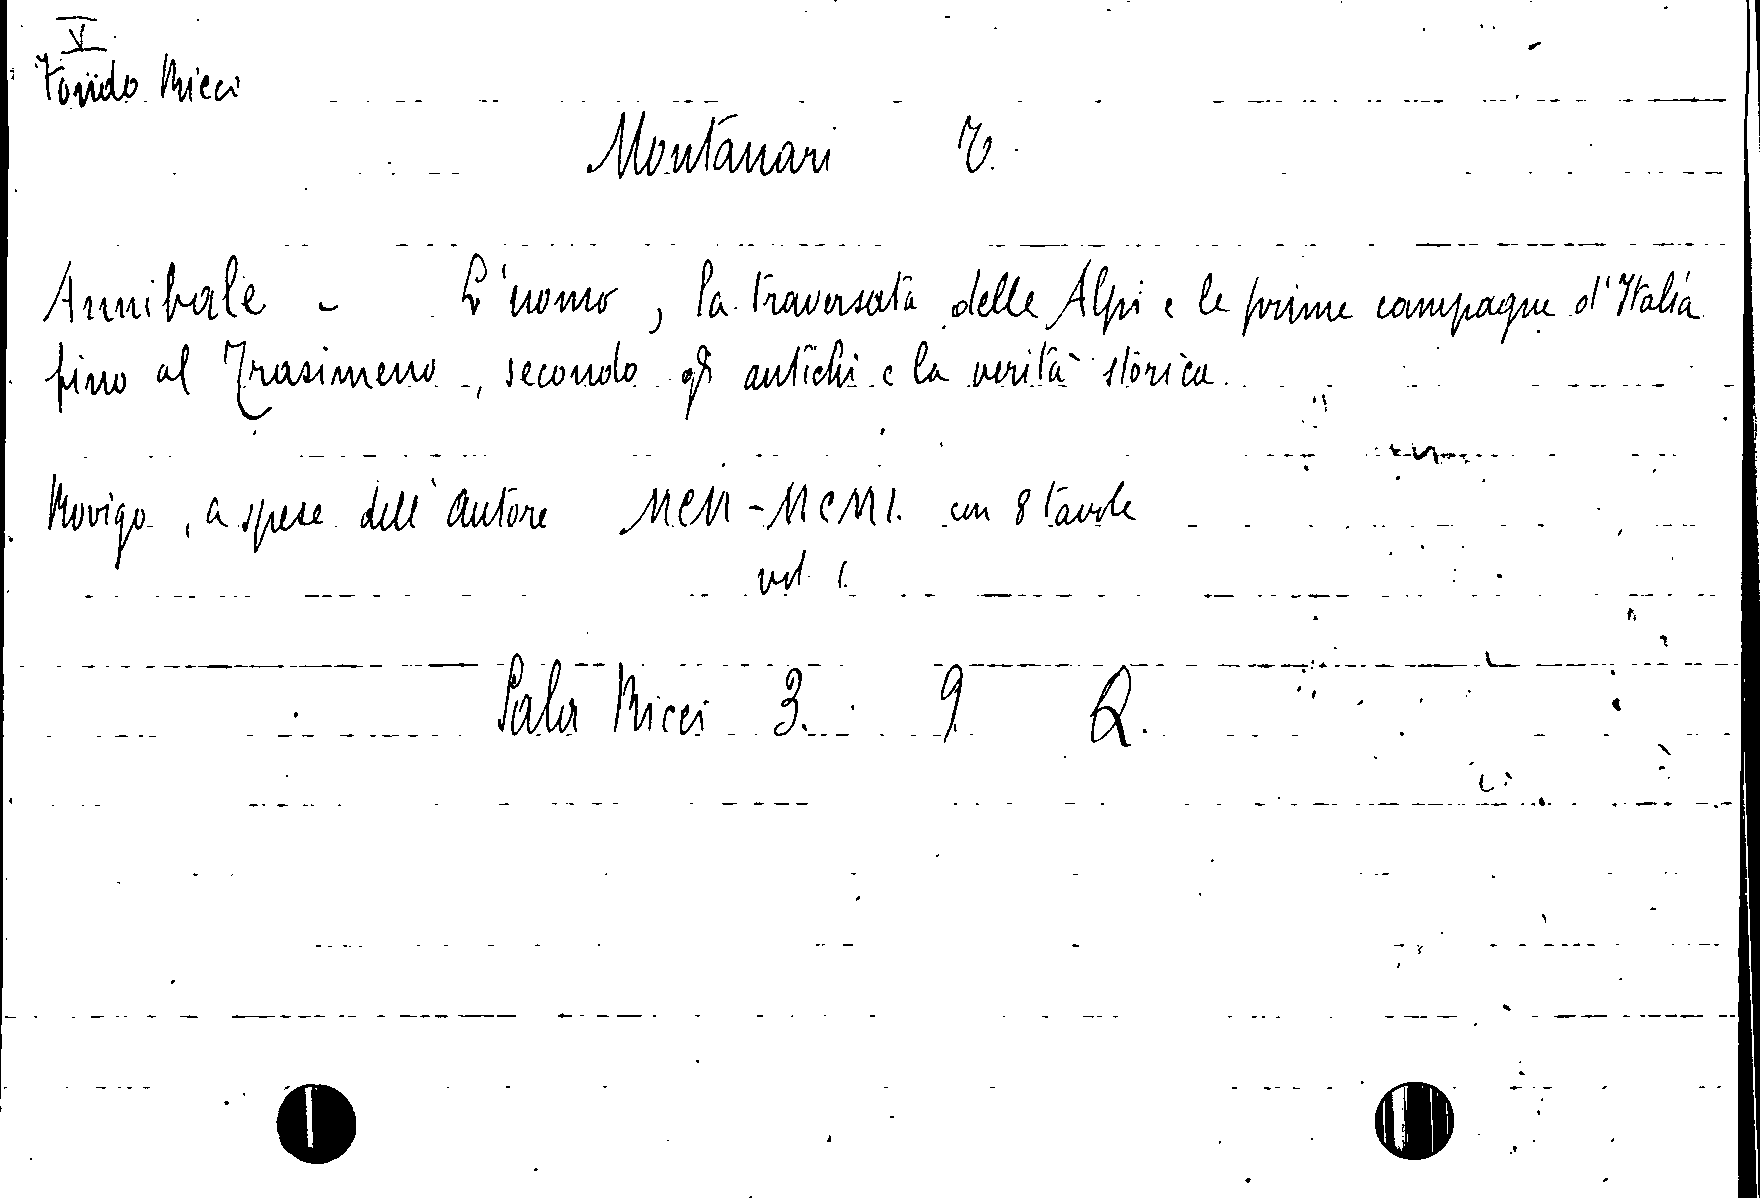 V
Fondo Ricci
Montanari T.
Annibale - L'uomo, la traversata delle Alpi e le prime campagne d'Italia
fino al Trasimeno, secondo gli antichi e la verità storica
Rovigo, a spese dell'autore MCM-MCMI. con 8 tavole
vol 1.
Sala Ricci 3. 9 Q.